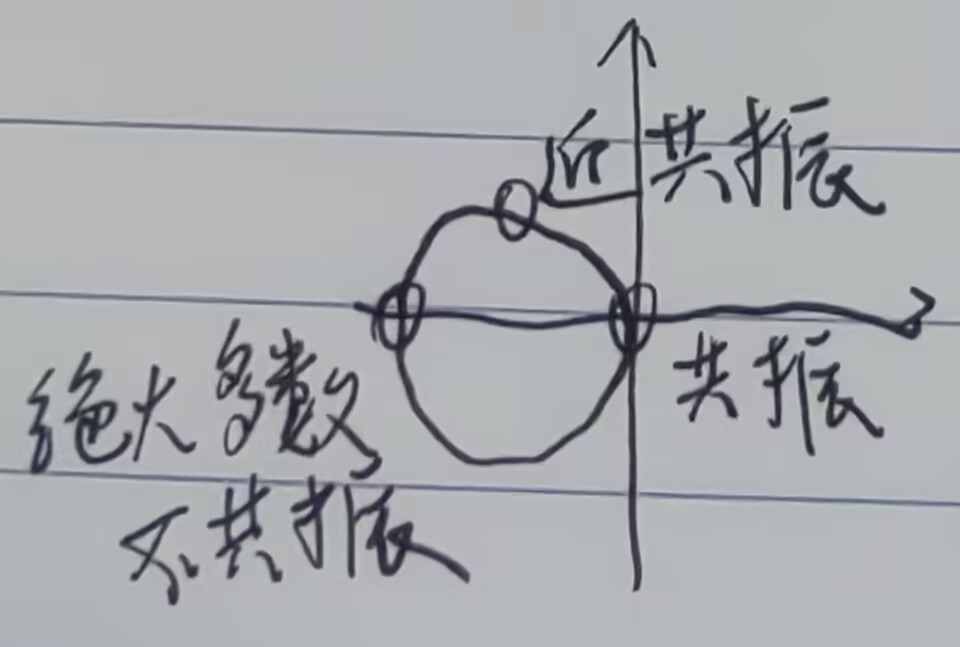 近共振
共振
绝大多数
不共振